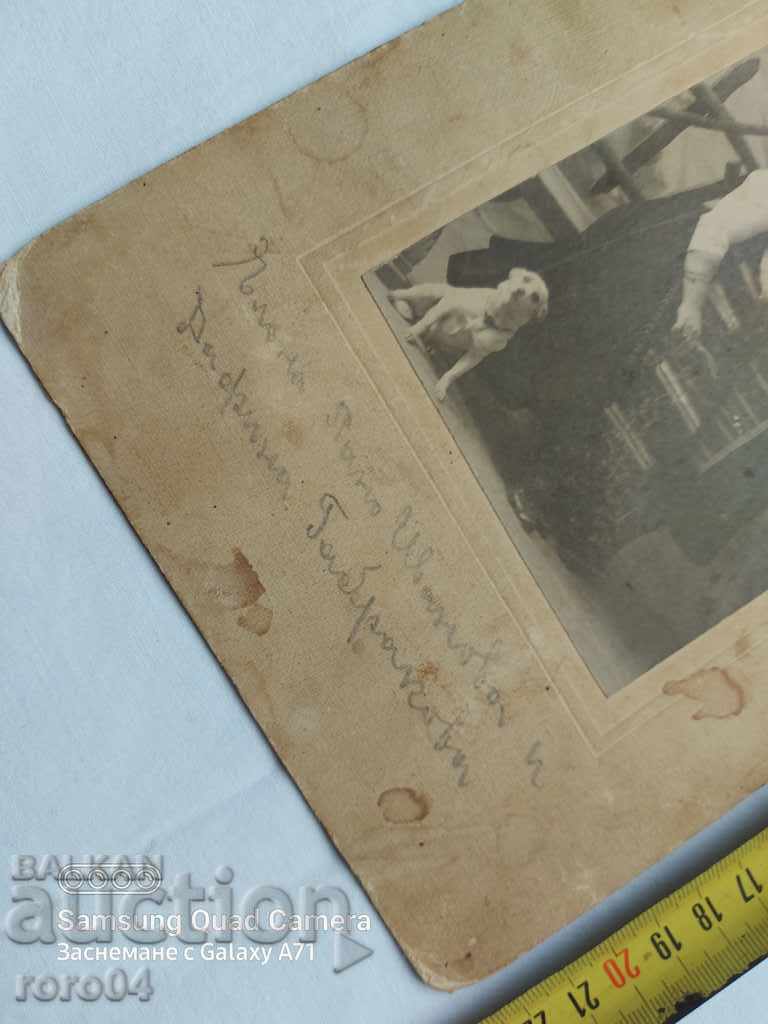 Иванова и
Дафина Габракова
17 18 19 20 21 22
BALKAN
auction
Samsung Quad Camera
Заснемане с Galaxy A71
roro04